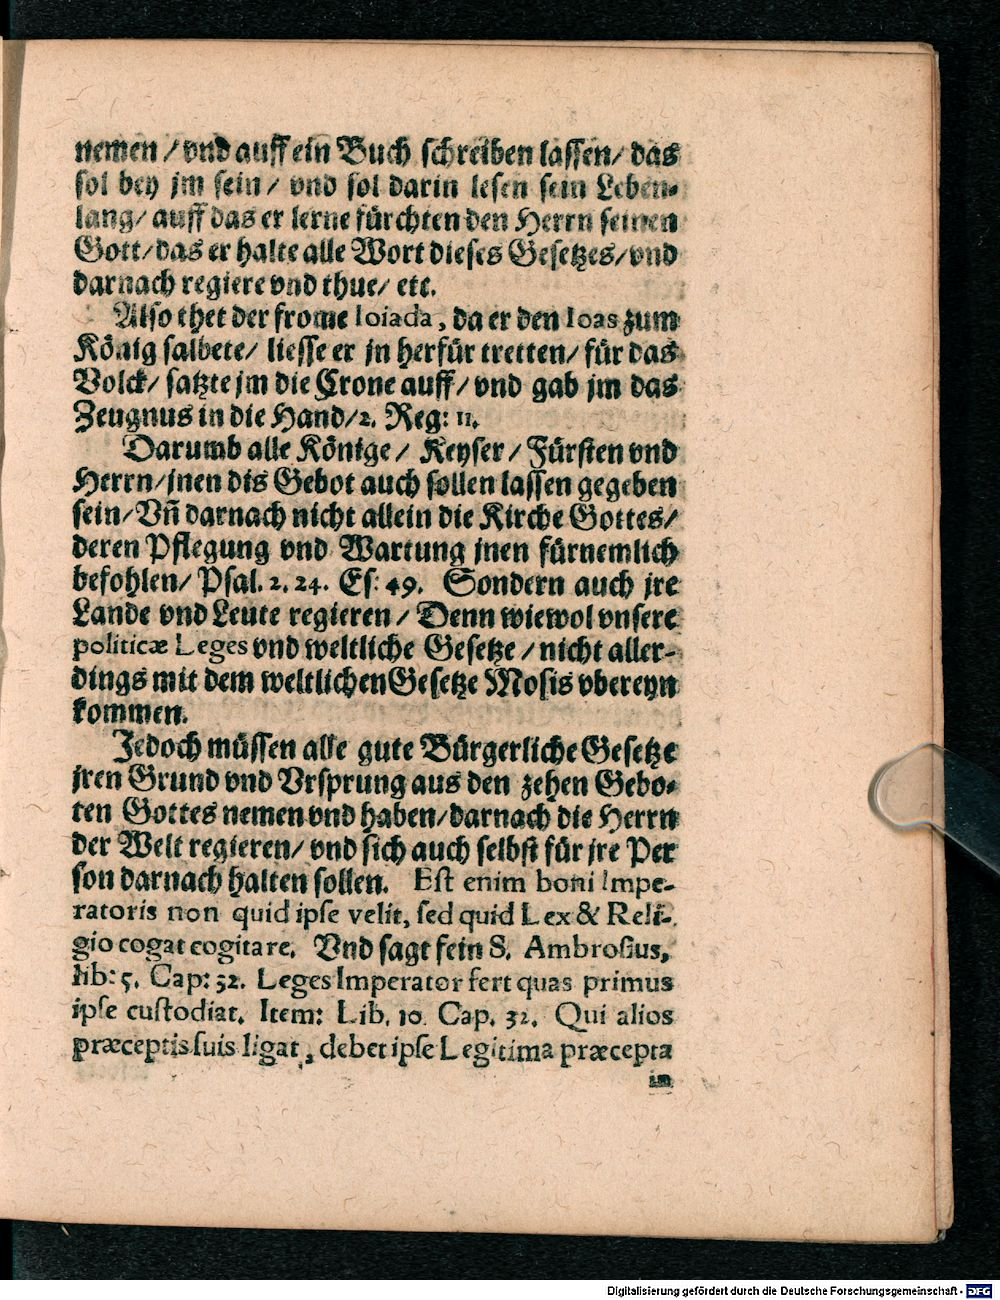 nemen / vnd auff ein Buch schreiben lassen / das
sol bey jm sein / vnd sol darin lesen sein Leben-
lang / auff das er lerne fürchten den Herrn seinen
Gott / das er halte alle Wort dieses Gesetzes / vnd
darnach regiere vnd thue / etc.
Also thet der frome Ioiada, da er den Ioas zum
König salbete / liesse er jn herfür tretten / für das
Volck / satzte jm die Crone auff / vnd gab jm das
Zeugnus in die Hand / 2. Reg: 11.
Darumb alle Könige / Keyser / Fürsten vnd
Herrn / jnen dis Gebot auch sollen lassen gegeben
sein / Vñ darnach nicht allein die Kirche Gottes /
deren Pflegung vnd Wartung jnen fürnemlich
befohlen / Psal. 2. 24. Es: 49. Sondern auch jre
Lande vnd Leute regieren / Denn wiewol vnsere
politicæ Leges vnd weltliche Gesetze / nicht aller-
dings mit dem weltlichen Gesetze Mosis vbereyn
kommen.
Jedoch müssen alle gute Bürgerliche Gesetze
jren Grund vnd Vrsprung aus den zehen Gebo-
ten Gottes nemen vnd haben / darnach die Herrn
der Welt regieren / vnd sich auch selbst für jre Per
son darnach halten sollen. Est enim boni Impe-
ratoris non quid ipse velit, sed quid Lex & Reli-
gio cogat cogitare. Vnd sagt fein S. Ambroßus,
lib: 5. Cap: 32. Leges Imperator fert quas primus
ipse custodiat. Item: Lib. 10. Cap. 32. Qui alios
præceptis suis ligat, debet ipse Legitima præcepta
im
Digitalisierung gefördert durch die Deutsche Forschungsgemeinschaft - DFG